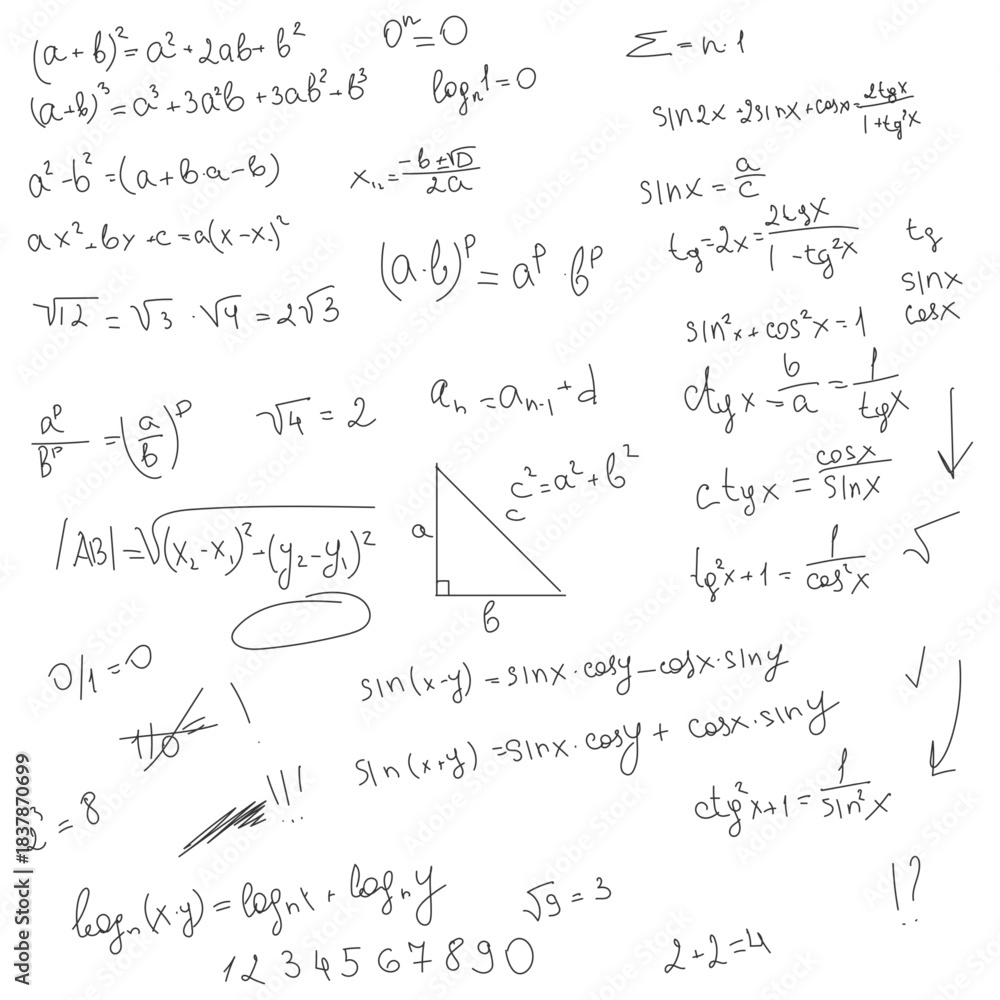 (a+b)²=a²+2ab+b²
0ⁿ=0
Σ=n·1
(a+b)³=a³+3a²b+3ab²+b³
logₙ1=0
sin2x=2sinx+cosx=2tgx/1+tg²x
a²-b²=(a+b·a-b)
x₁,₂=-b±√D/2a
sinx=a/c
ax²+by+c=a(x-x.)²
(a·b)ᵖ=aᵖ·bᵖ
tg=2x=2tgx/1-tg²x
tg
sinx
cosx
√12=√3·√4=2√3
sin²x+cos²x=1
aᵖ/bᵖ=(a/b)ᵖ
√4=2
aₙ=aₙ₋₁+d
ctgx=b/a=1/tgx
c²=a²+b²
c
a
b
ctgx=cosx/sinx
|AB|=√(x₂-x₁)²-(y₂-y₁)²
tg²x+1=1/cos²x
√
0/1=0
sin(x-y)=sinx·cosy-cosx·siny
1/0
!
sin(x+y)=sinx·cosy+cosx·siny
!!!
ctg²x+1=1/sin²x
2³=8
logₙ(x·y)=logₙx+logₙy
√9=3
!?
1 2 3 4 5 6 7 8 9 0
2+2=4
Adobe Stock | #1837870699